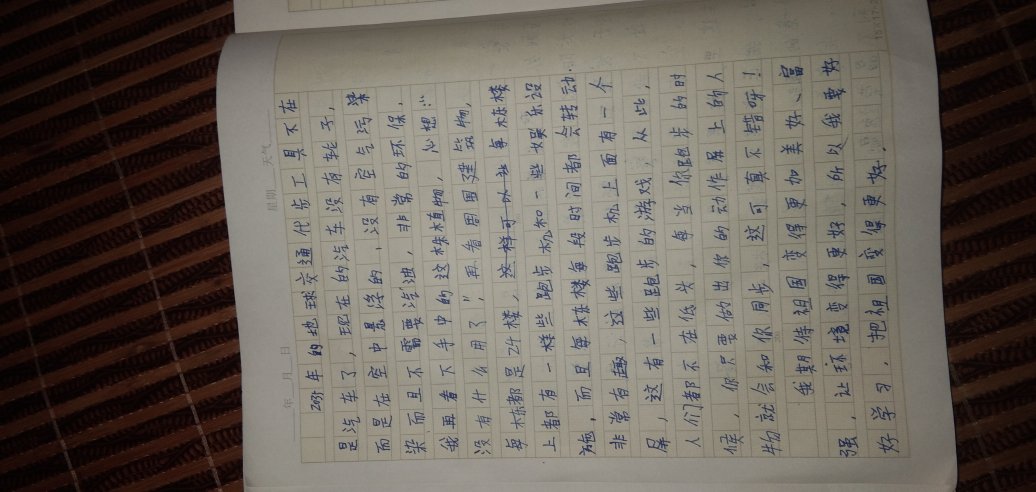 星期 天气
年 月 日
2035年的地球交通代步工具不在
是汽车了，现在的汽车没有轮子，
而是在空中悬浮的，没有空气污染
染而且不需要汽油，非常的环保，
我再看下手中的这株植物，心想：“
没有什么用了”，再看周围建筑物，
每栋都是24楼，这样可以让每栋楼
上都有一样些跑步机和一些娱乐设
施，而且每栋楼每段时间都会转动.
非常有趣，这些跑步机上面有一个
屏，这有一些跑步的游戏，从此，
人们都不在低头，每当你跑步的时
候，你只要做出你的动作屏上的人
物就会和你同步，这可真不错呀！
我期待祖国变得更加美好、富
强，让环境变得更好，所以我要好
好学习，把祖国变得更好.